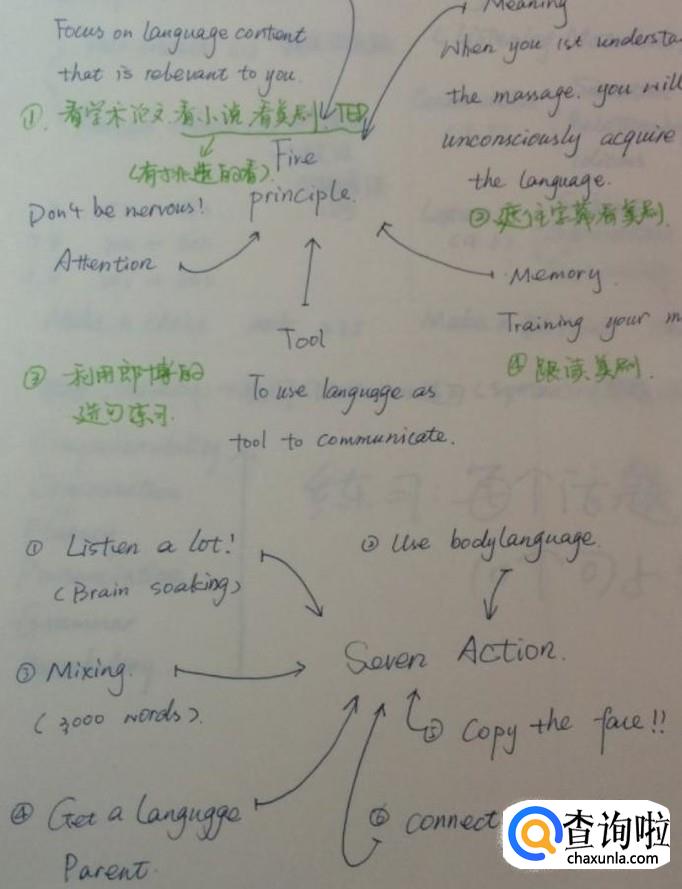 Meaning
Focus on language content
that is relevant to you.
When you 1st understa
the massage. you will
unconsciously acquire
the language.
① 看学术论文.看小说.看美剧.TED
(有挑选的看)
Five
principle.
② 遮住字幕看美剧
Don't be nervous!
Attention
Memory.
Training your m
④ 跟读美剧.
Tool
To use language as
tool to communicate.
③ 利用郎博的
造句练习.
练习:每个话题
① Listen a lot!
(Brain soaking)
② Use bodylanguage.
Seven Action.
③ Mixing.
(3,000 words).
⑤ Copy the face!!
④ Get a langugge
Parent.
⑥ connect
查询啦
chaxunla.com